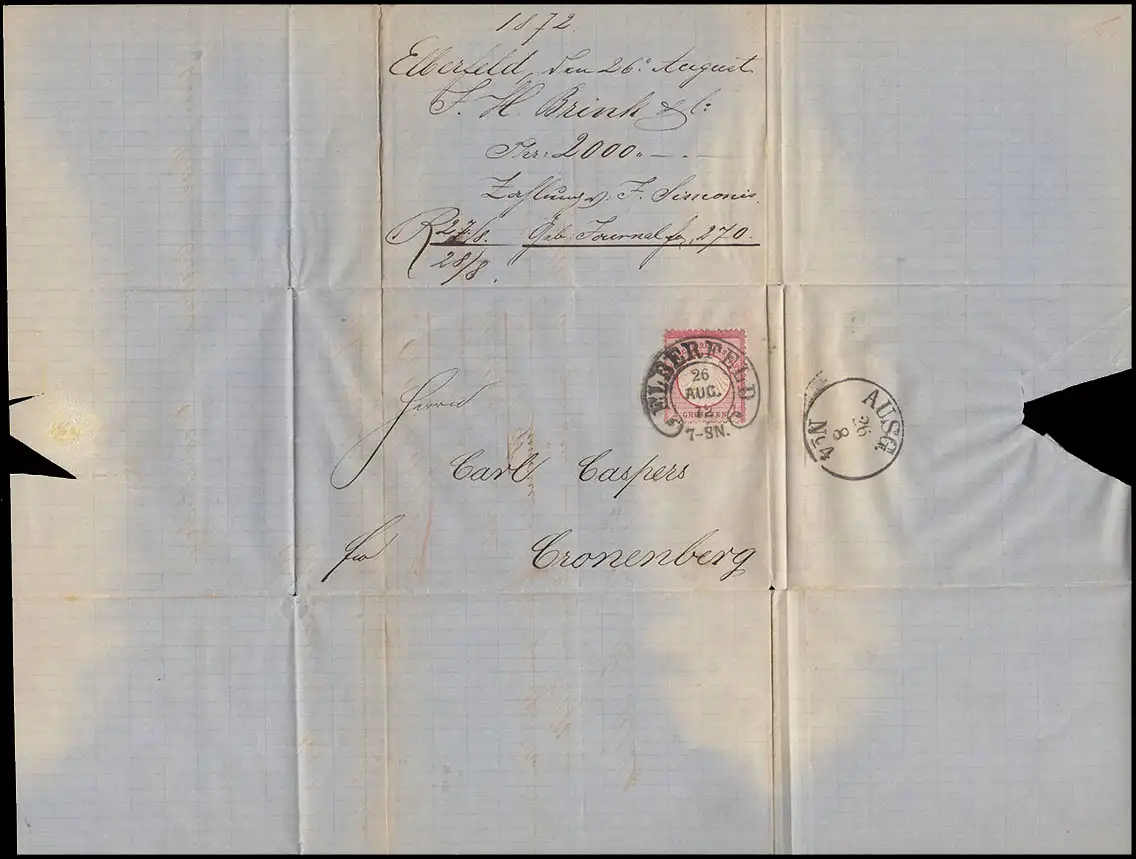 1872.
Elberfeld, den 26. August
F. H. Brink & C:
Thr: 2000.. — . –
Zahlung v. F. Simonis.
R 27/8. Geb: Journal fo, 270.
28/8.
ELBERFELD
26
AUG.
72
7-8N.
GROSCHEN
AUSG
26
8
N 4
Herrn
Carl Caspers
fro Cronenberg